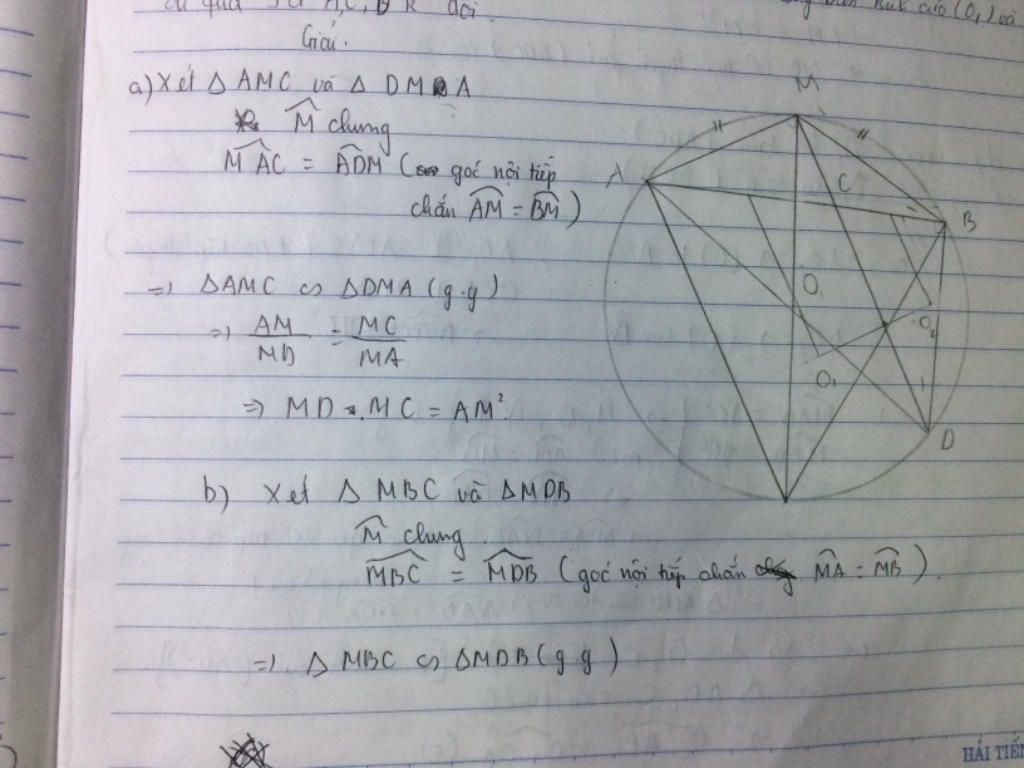 Giải.
a) Xét △ AMC và △ DMA
M̂ chung
M̂AC = ÂDM (góc nội tiếp
chắn A͡M = B͡M)
=> △AMC ∽ △DMA (g.g)
=> AM/MD = MC/MA
=> MD . MC = AM²
b) Xét △ MBC và △MDB
M̂ chung
M̂BC = M̂DB (góc nội tiếp chắn M͡A = M͡B).
=> △ MBC ∽ △MDB (g.g)
M
A
C
B
O
O₂
O₁
D
HẢI TIẾN